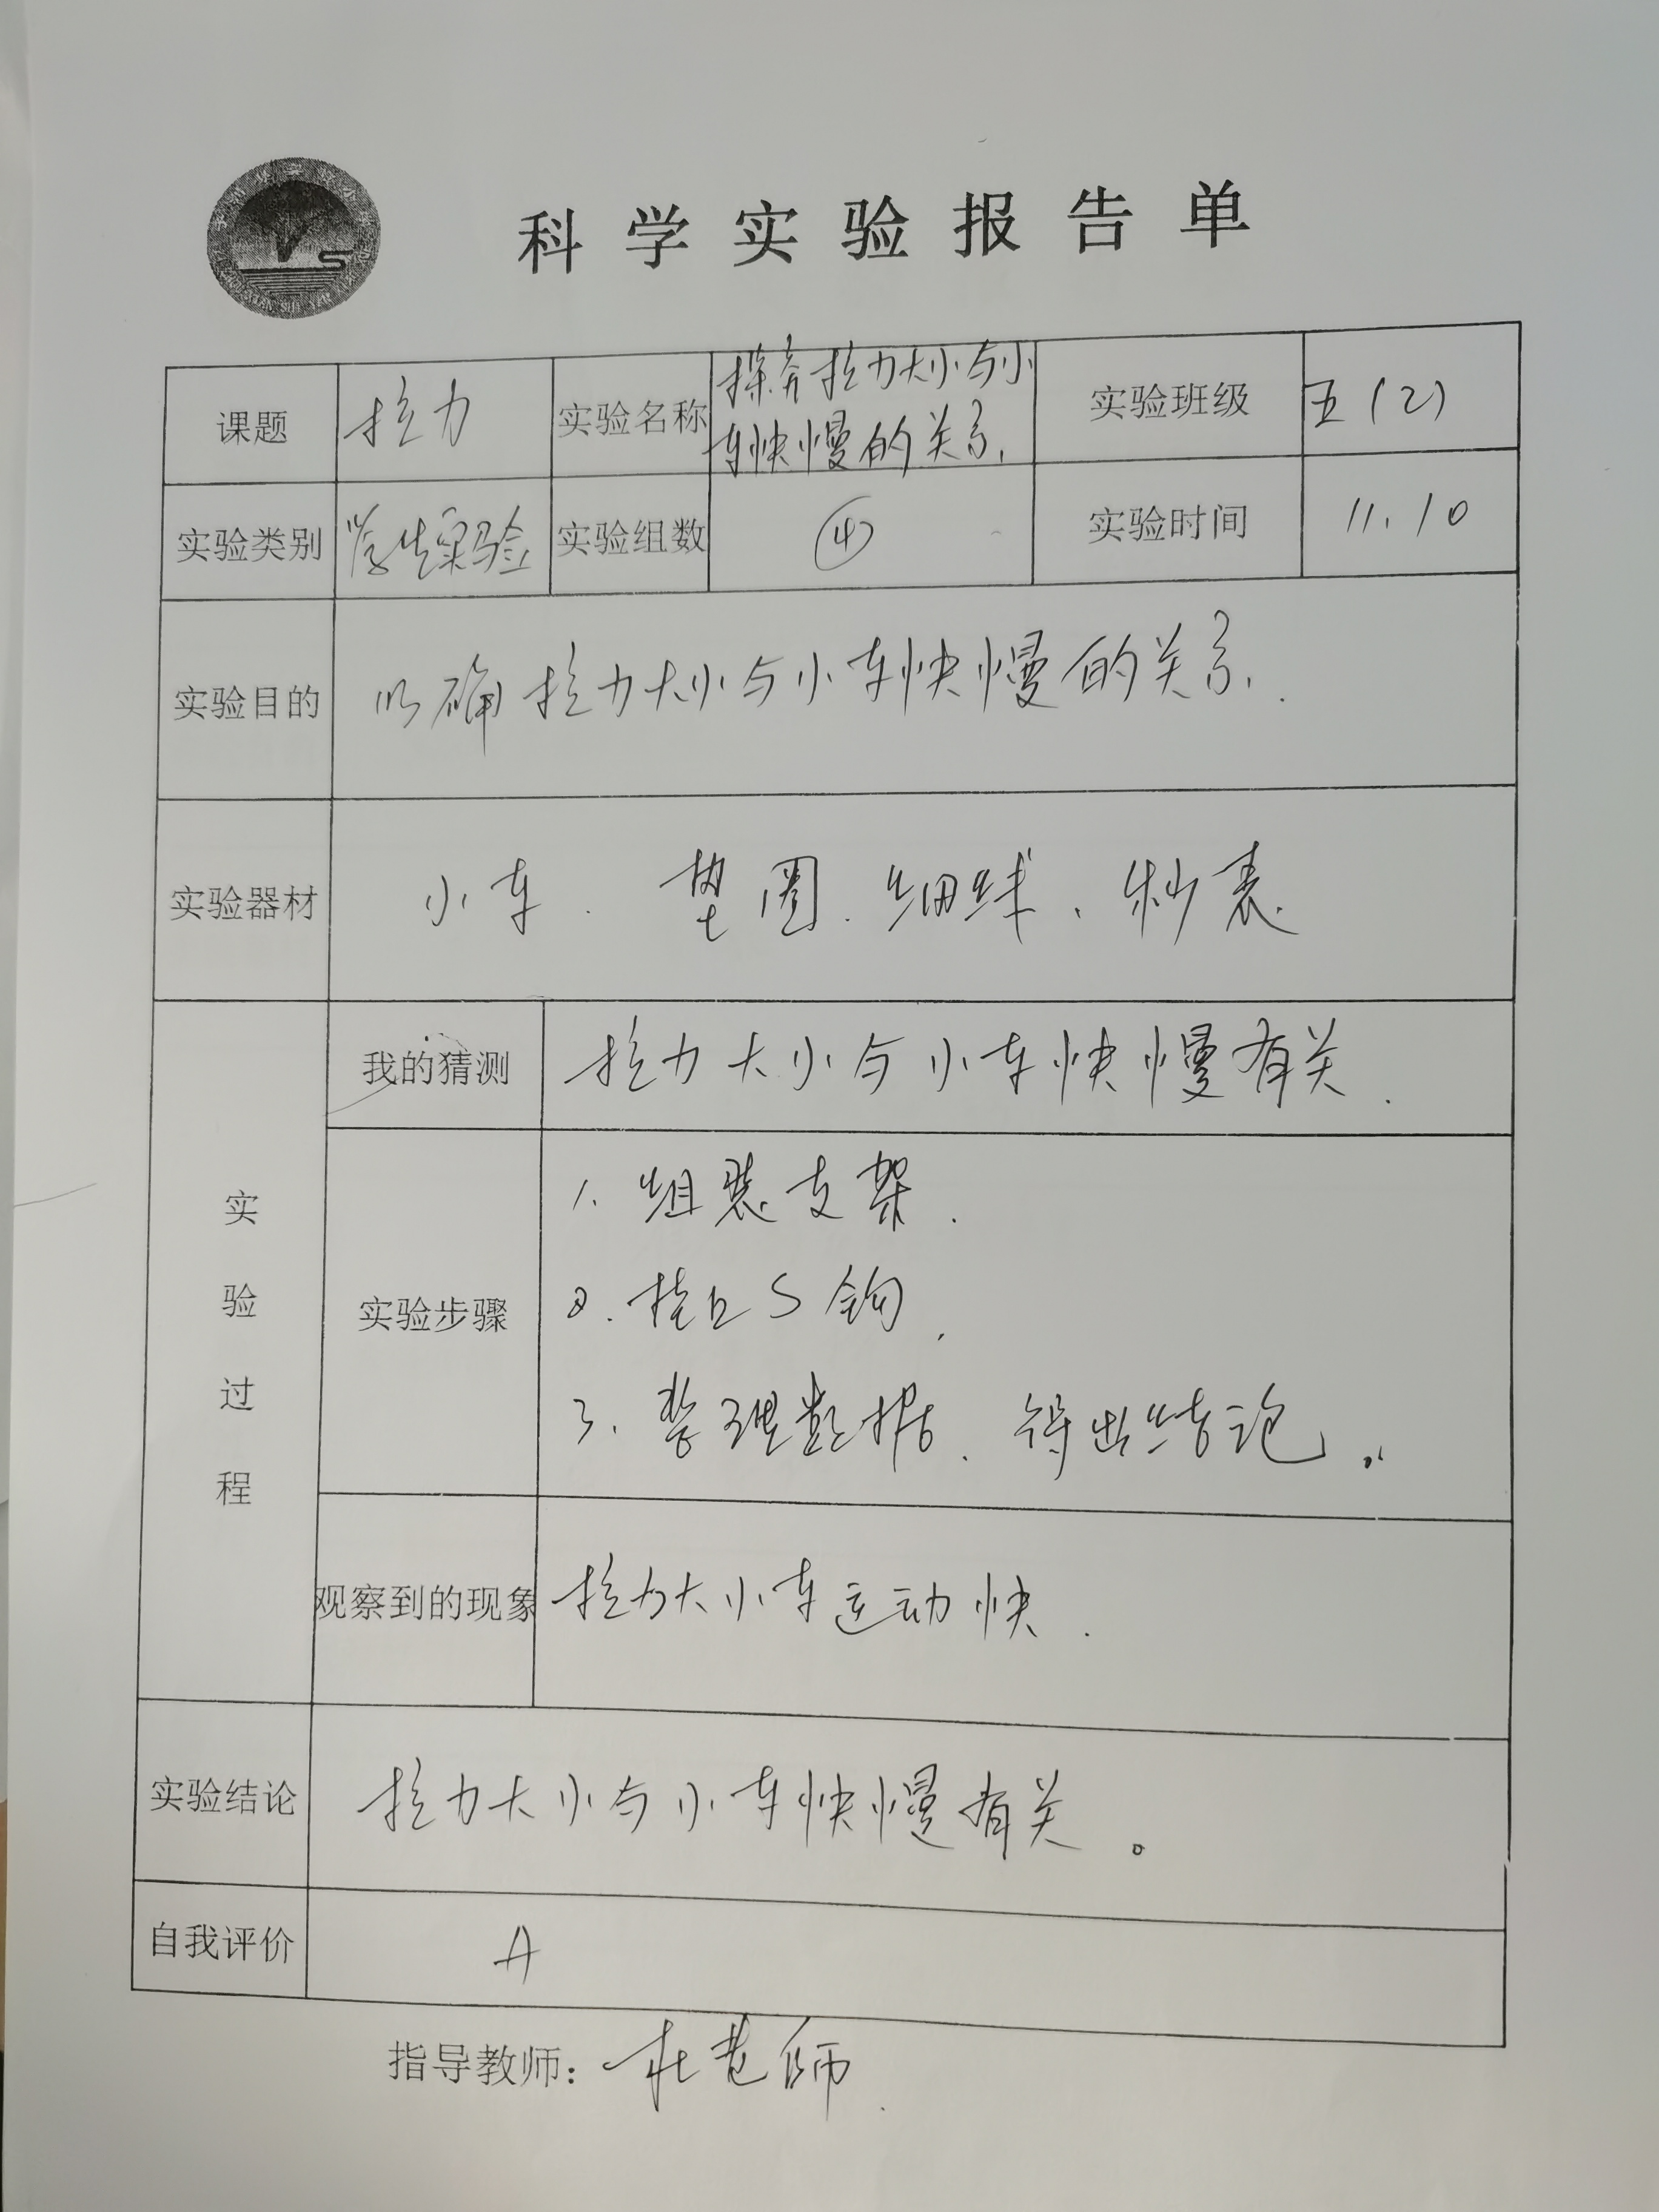 科学实验报告单
课题 拉力 实验名称 探究拉力大小与小
车快慢的关系. 实验班级 五(2)
实验类别 学生实验 实验组数 ④ 实验时间 11.10
实验目的 明确拉力大小与小车快慢的关系.
实验器材 小车. 垫圈. 细线、秒表.
实验过程
我的猜测 拉力大小与小车快慢有关.
实验步骤
1. 组装支架.
2. 挂上S钩.
3. 整理数据. 得出结论。
观察到的现象 拉力大小车运动快.
实验结论 拉力大小与小车快慢有关。
自我评价 A
指导教师: 杜老师.